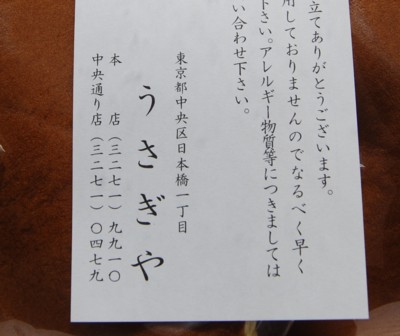 立てありがとうございます。
用しておりませんのでなるべく早く
下さい。アレルギー物質等につきましては
い合わせ下さい。
東京都中央区日本橋一丁目
うさぎや
本　店（三二七一）九九一〇
中央通り店（三二七一）〇四七九